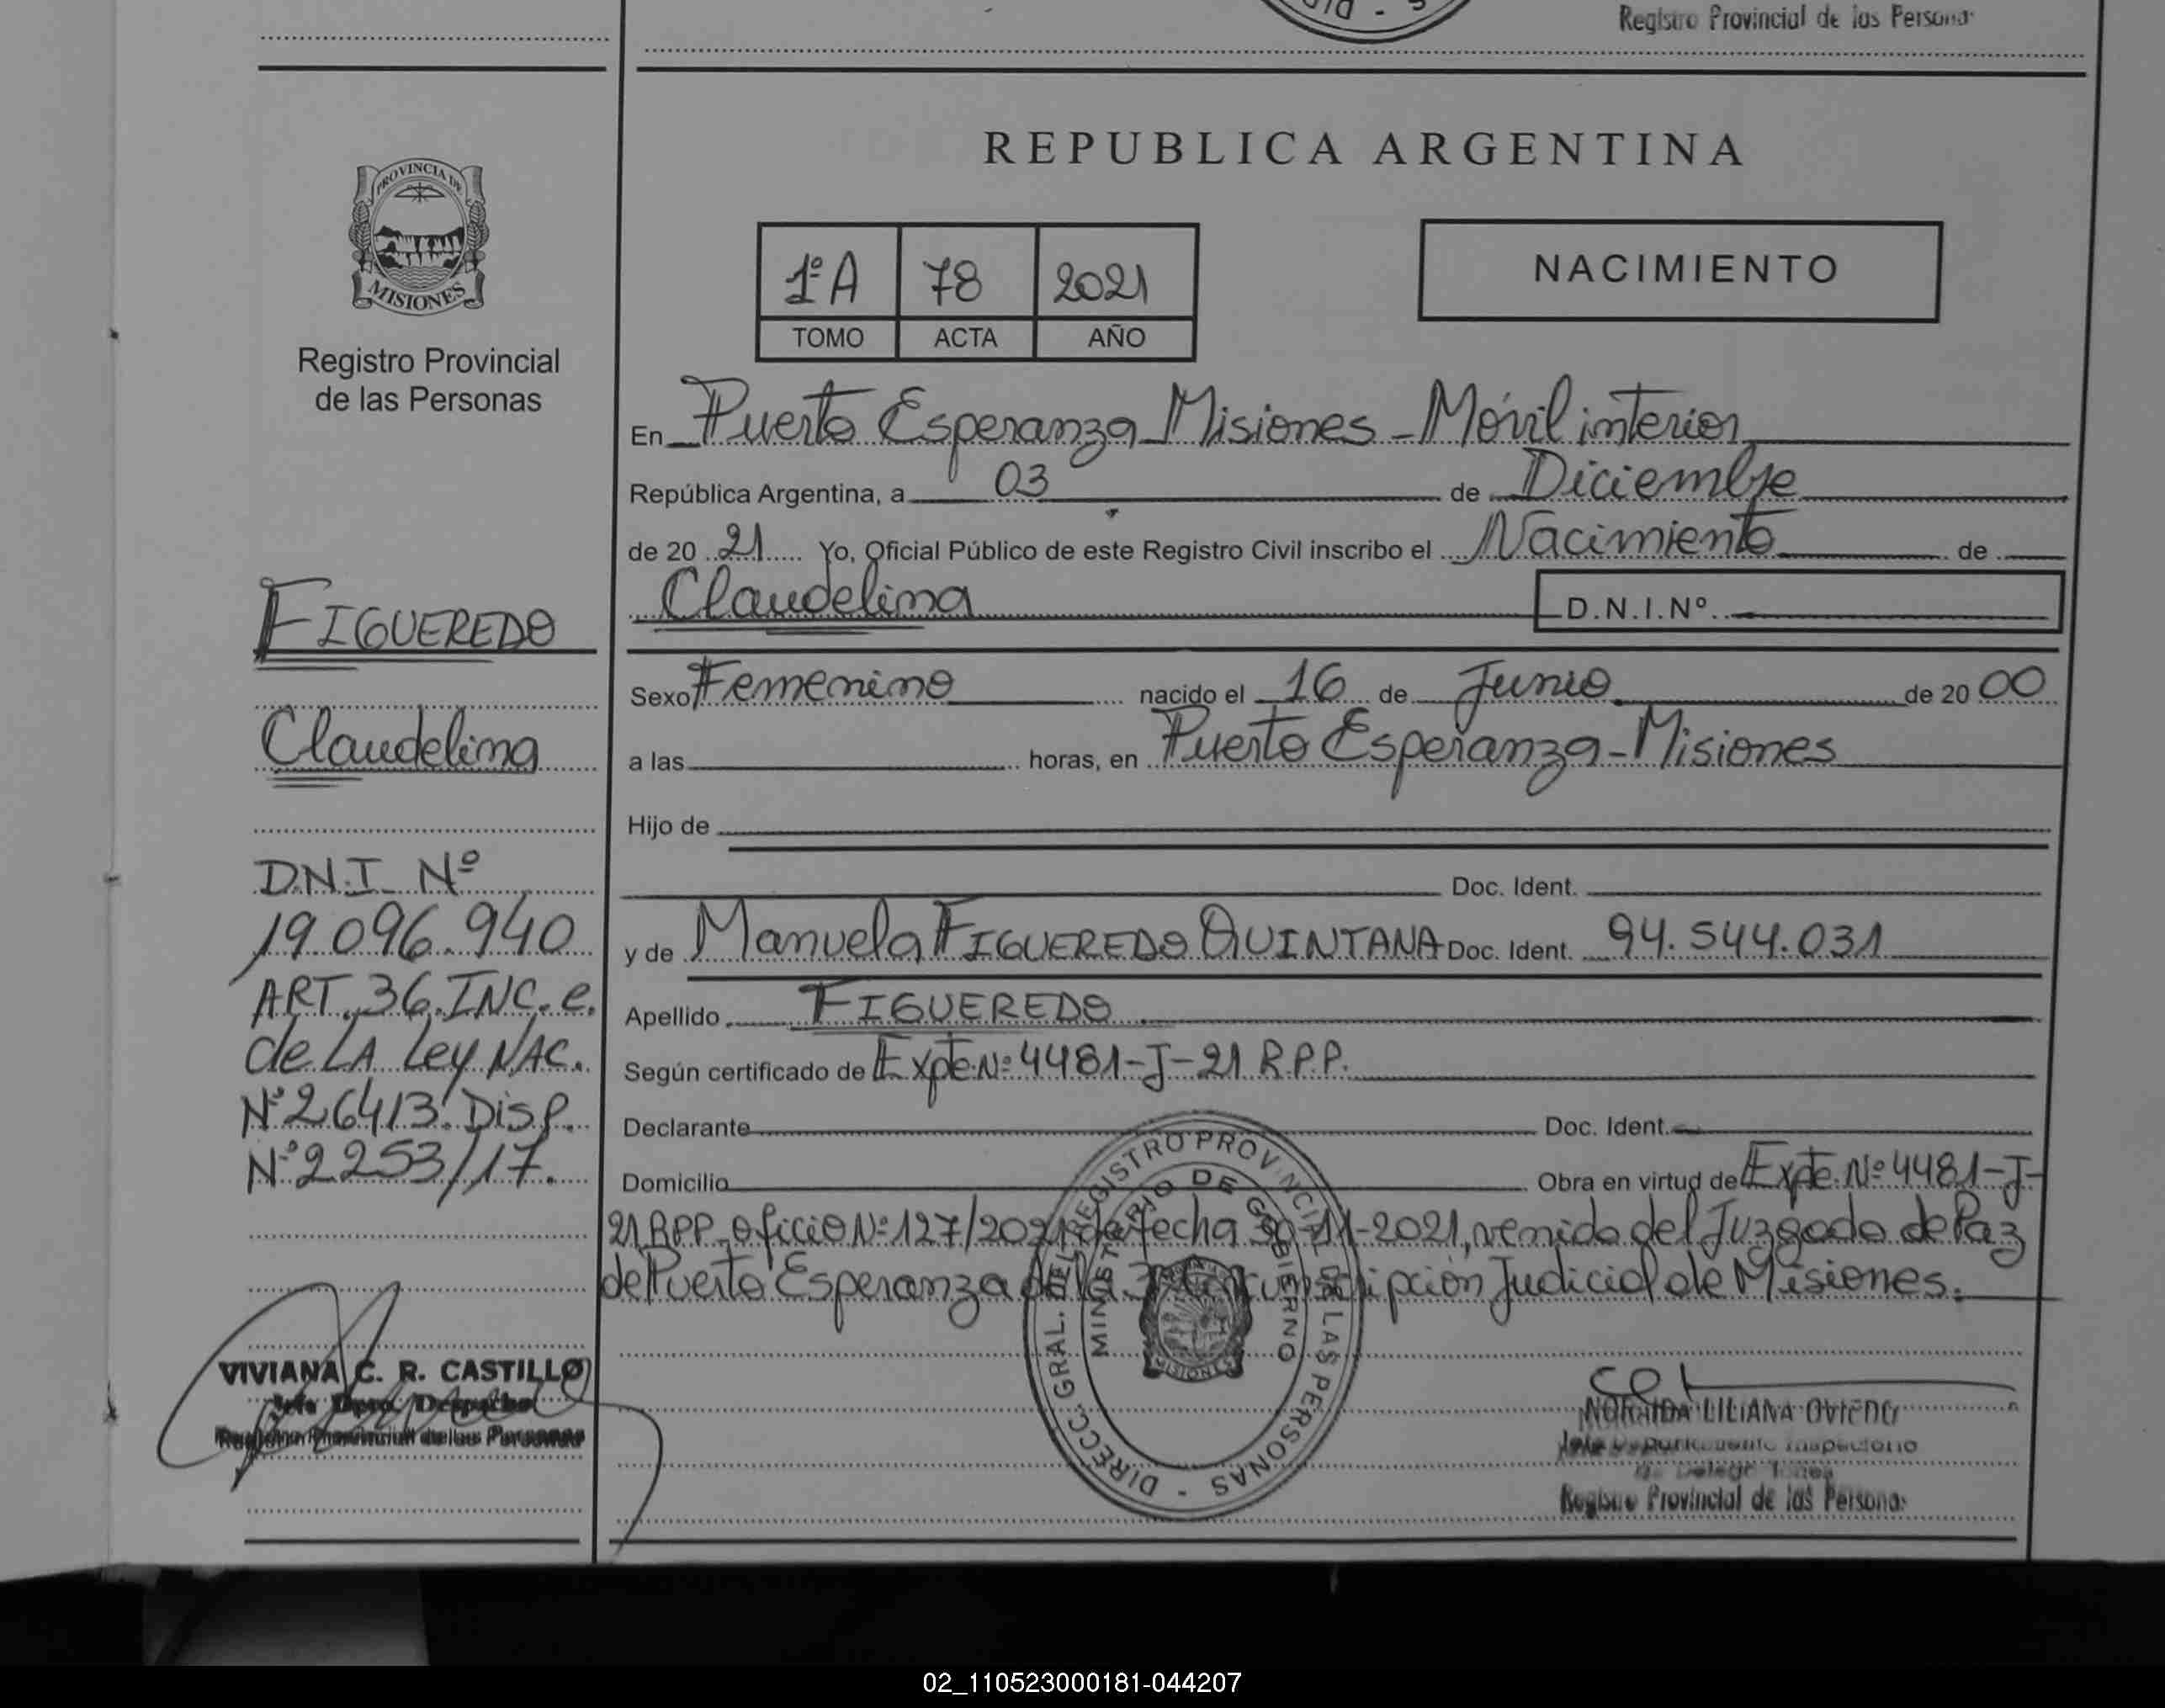 Registro Provincial de las Personas
PROVINCIA DE
MISIONES
Registro Provincial
de las Personas
FIGUEREDO
Claudelina
D.N.I. Nº
19.096.940
ART. 36. INC. e.
de LA Ley NAC.
Nº 26413. Disp.
Nº 2253/17.
VIVIANA C. R. CASTILLO
Jefe Dpto. Despacho
Registro Provincial de las Personas
REPUBLICA ARGENTINA
1º A 78 2021
TOMO ACTA AÑO
NACIMIENTO
En Puerto Esperanza Misiones - Móvil interior
República Argentina, a 03 de Diciembre
de 20 21 Yo, Oficial Público de este Registro Civil inscribo el Nacimiento de
Claudelina D.N.I.Nº
Sexo Femenino nacido el 16 de Junio de 20 00
a las horas, en Puerto Esperanza - Misiones
Hijo de
Doc. Ident.
y de Manuela FIGUEREDO QUINTANA Doc. Ident. 94.544.031
Apellido FIGUEREDO
Según certificado de Expte Nº 4481-J-21 R.P.P.
Declarante Doc. Ident.
Domicilio Obra en virtud de Expte. Nº 4481-J-
21 RPP. Oficio Nº 127/2021 de fecha 30-11-2021, venido del Juzgado de Paz
de Puerto Esperanza de la 3º Circunscripción Judicial de Misiones.
DIRECC. GRAL. DEL REGISTRO PROVINCIAL DE LAS PERSONAS -
MINISTERIO DE GOBIERNO
MISIONES
LILIANA OVIEDO
Jefe Departamento Inspectorio
de Delegaciones
Registro Provincial de las Personas
02_110523000181-044207